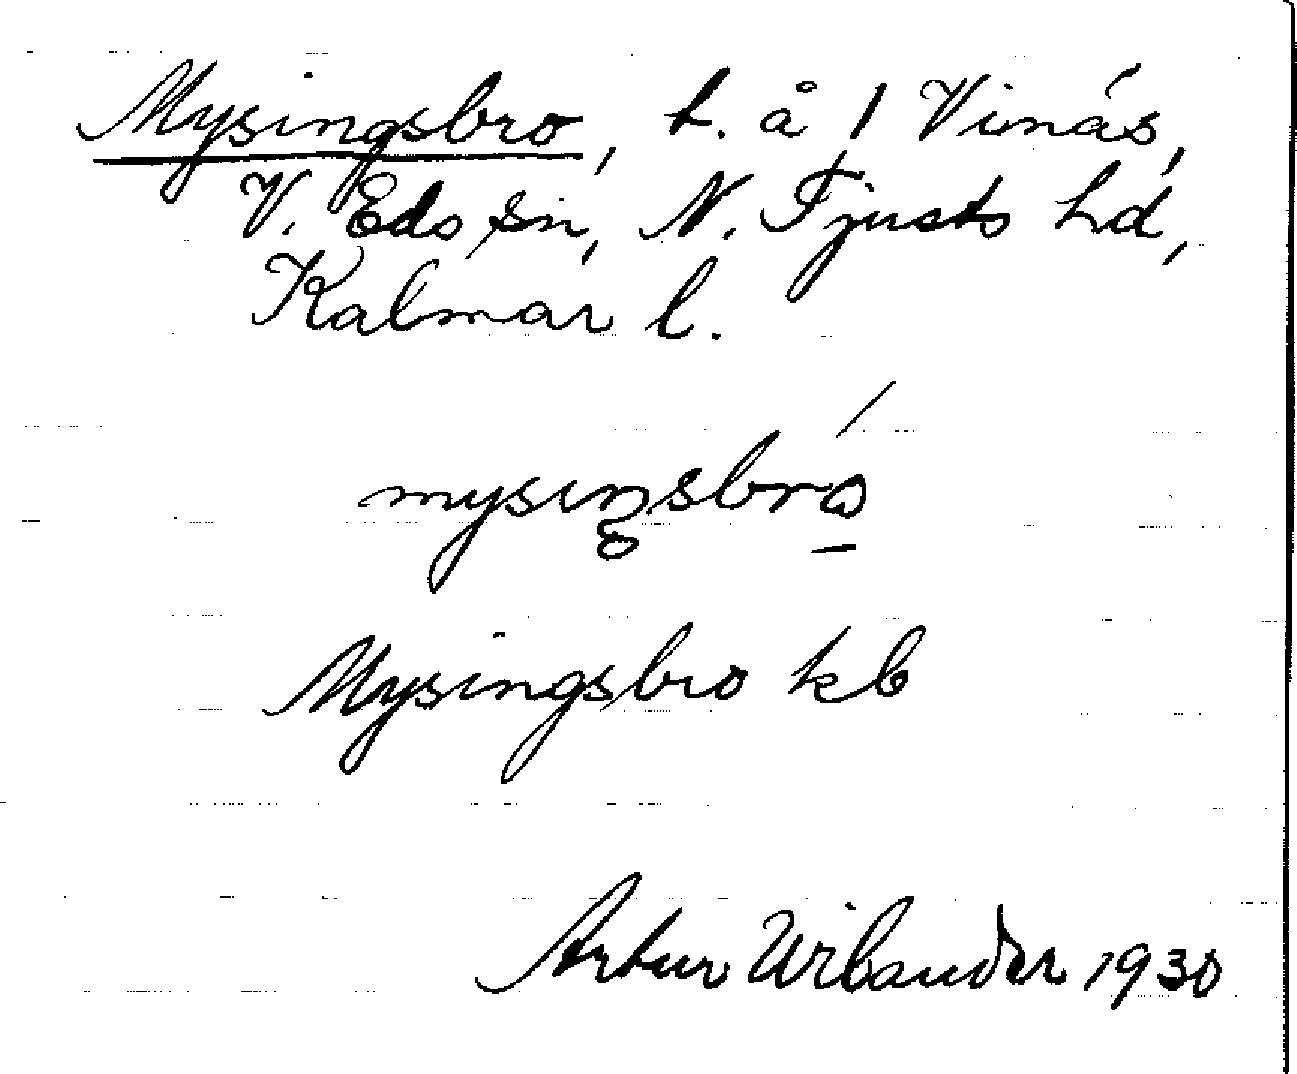 Mysingsbro, t. å 1 Vinäs,
V. Eds sn, N. Tjusts hd,
Kalmar l.
mysiŋsbro
Mysingsbro kb
Artur Wilander 1930